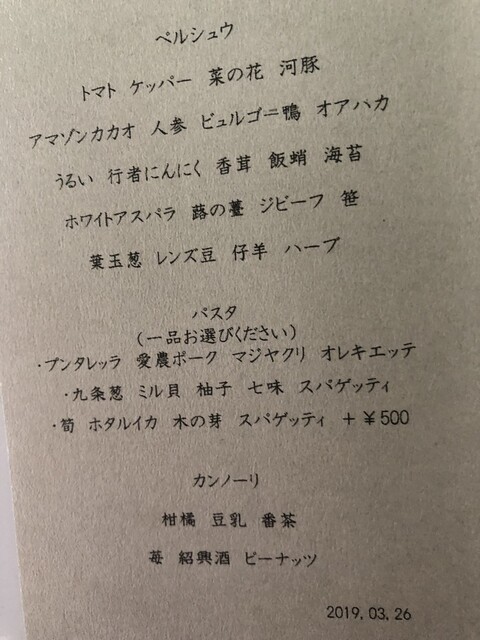 ペルシュウ
トマト ケッパー 菜の花 河豚
アマゾンカカオ 人参 ビュルゴー鴨 オアハカ
うるい 行者にんにく 香茸 飯蛸 海苔
ホワイトアスパラ 蕗の薹 ジビーフ 笹
葉玉葱 レンズ豆 仔羊 ハーブ
パスタ
(一品お選びください)
・プンタレッラ 愛農ポーク マジヤクリ オレキエッテ
・九条葱 ミル貝 柚子 七味 スパゲッティ
・筍 ホタルイカ 木の芽 スパゲッティ +¥500
カンノーリ
柑橘 豆乳 番茶
苺 紹興酒 ピーナッツ
2019.03.26